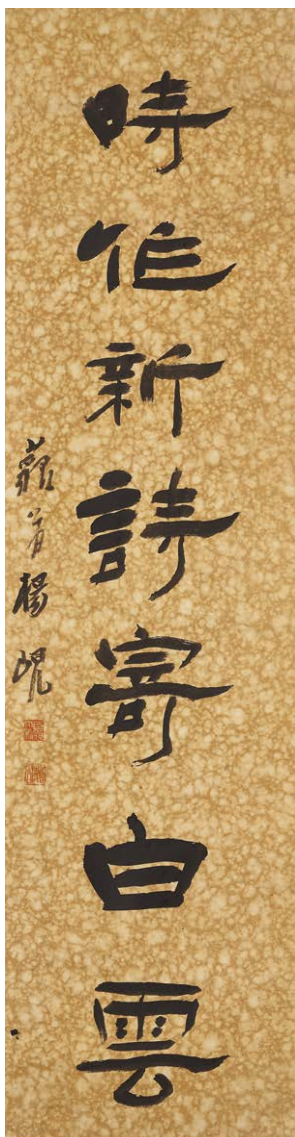 時作新詩寄白雲
藐翁楊峴